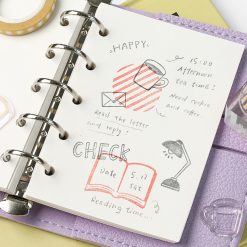 HAPPY.
15:00
Afternoon
tea time!
Need cookies
and coffee.
Read the letter
and reply!
CHECK
Date 5.17
Sat
Reading time...